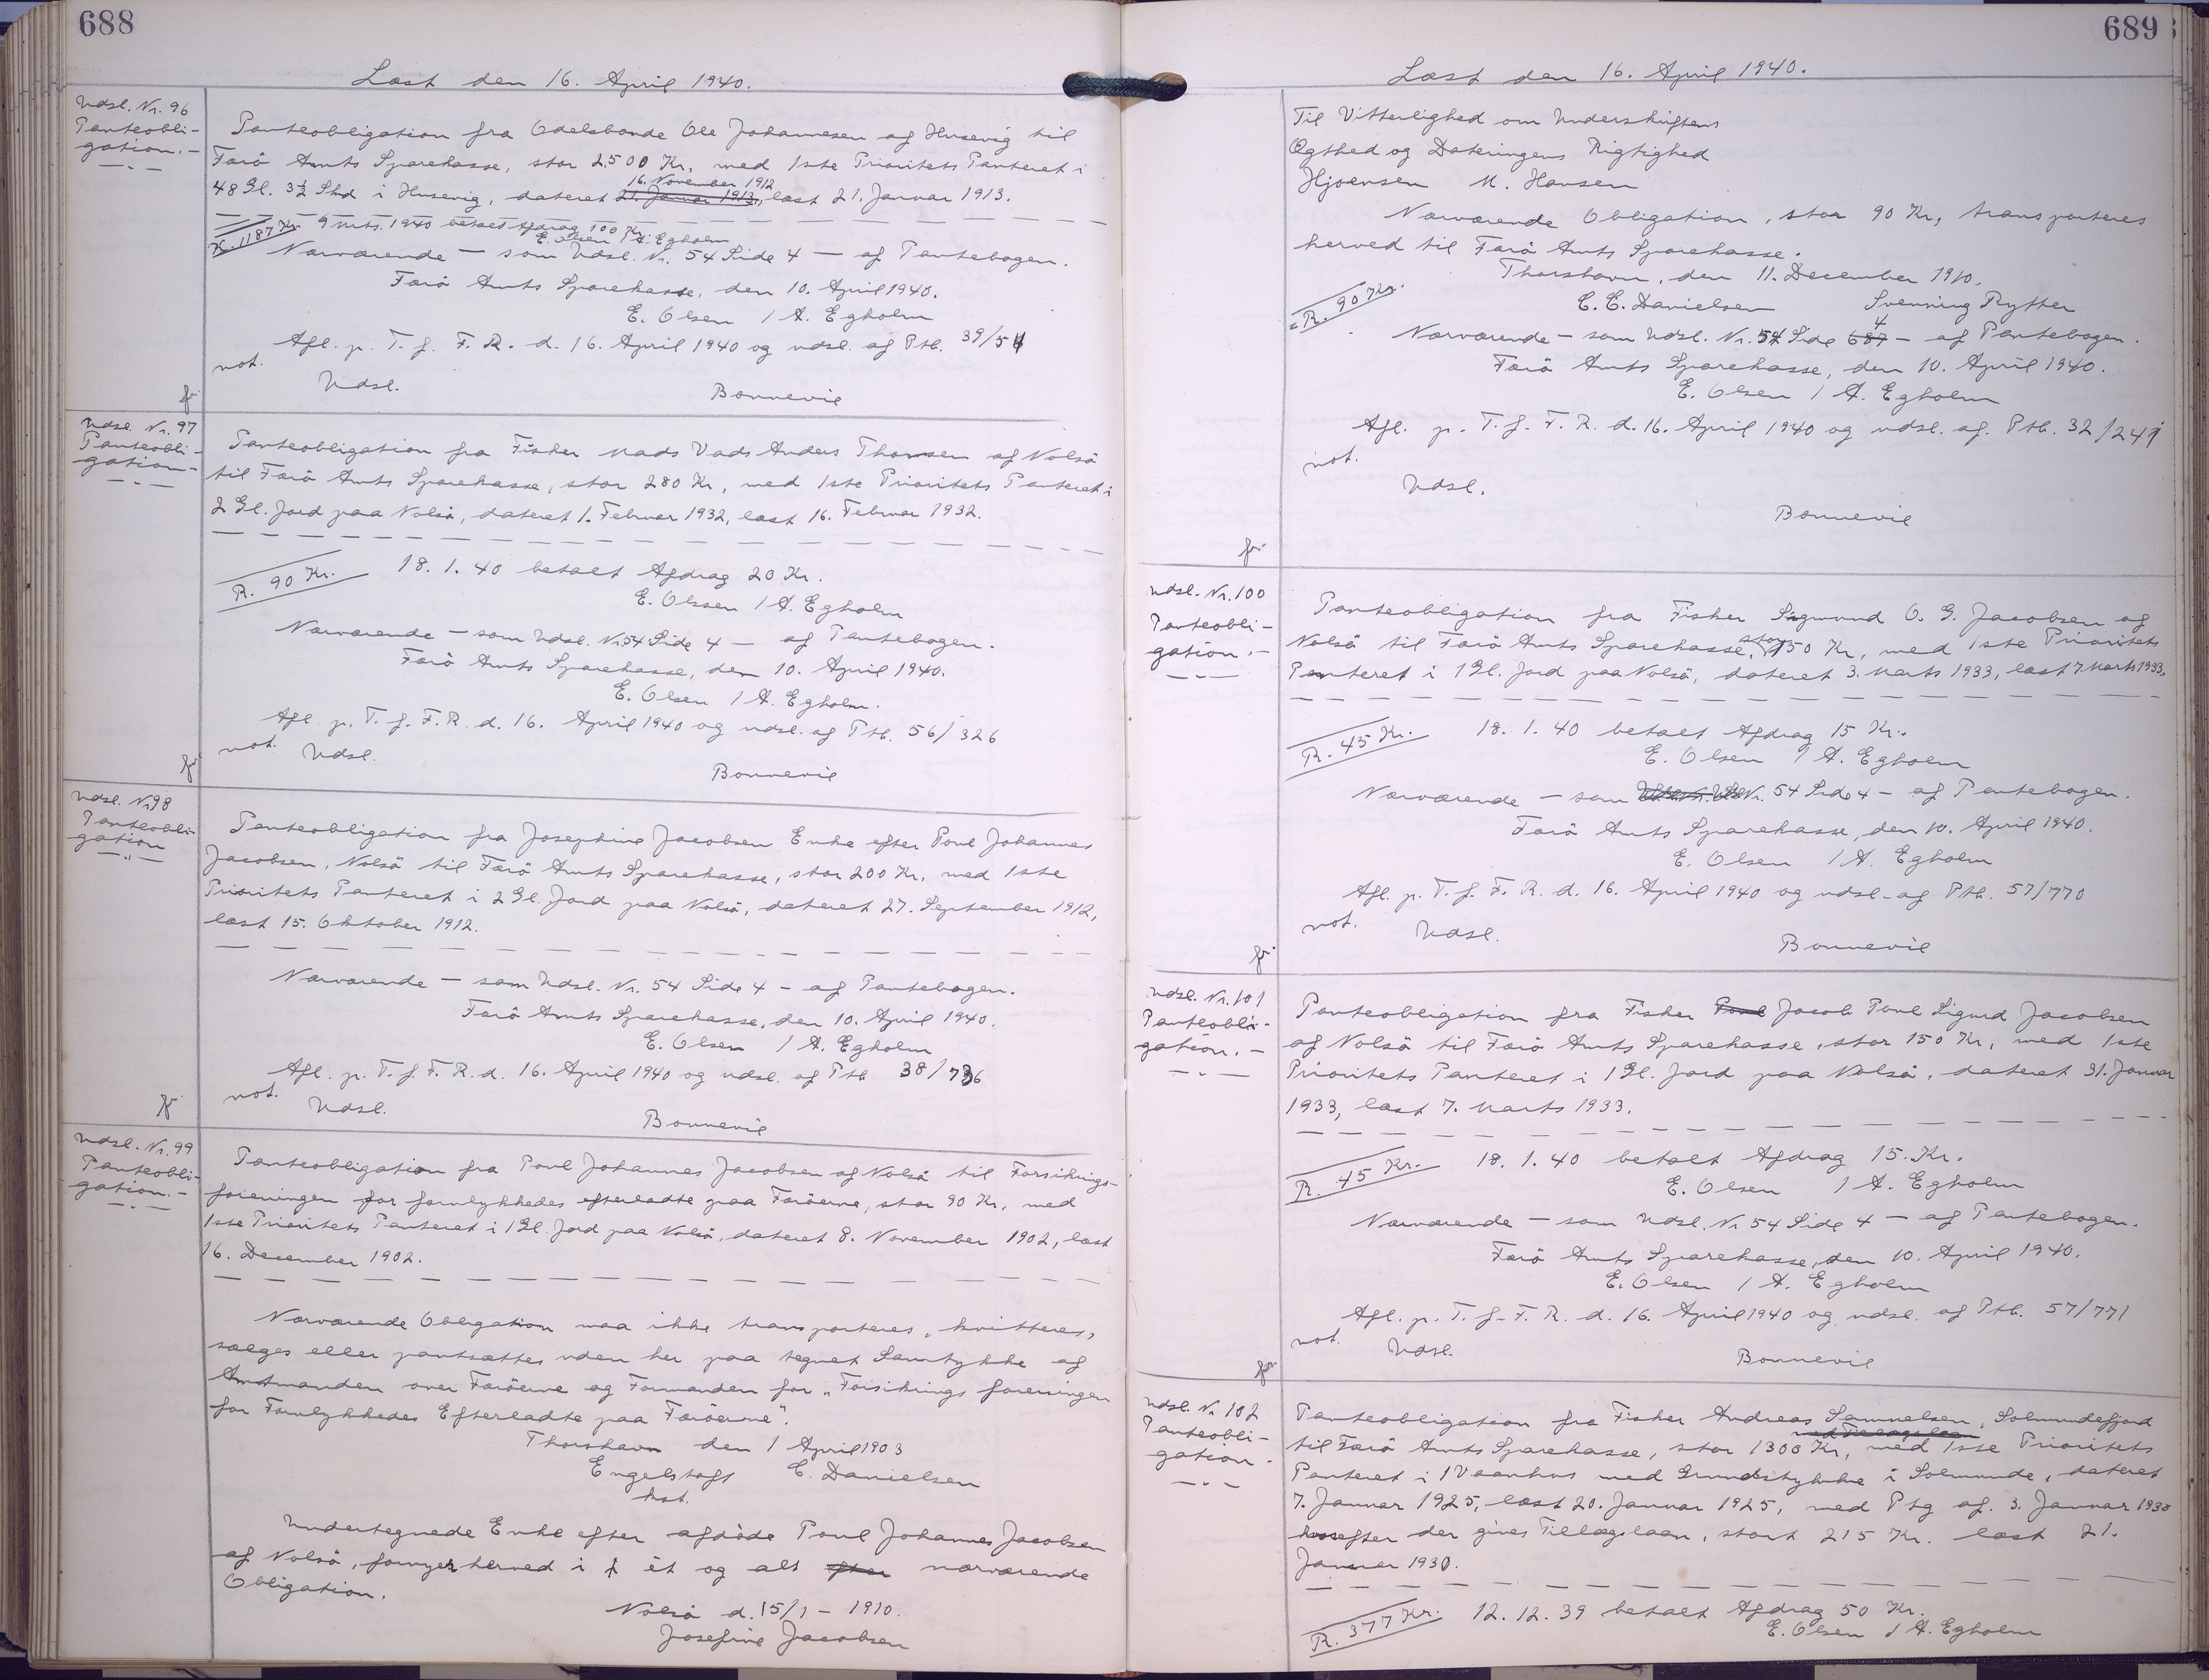 688
Læst den 16. April 1940.
Udsl. Nr. 96
Panteobli-
gation.-
Panteobligation fra Odelsbonde Ole Johannesen af Husevig til
Færö Amts Sparekasse, stor 2500 Kr, med 1ste Prioritets Panteret i
16. November 1912
48 Gl. 3½ Skd i Husevig, dateret 21. Januar 1913, læst 21. Januar 1913.
R. 1187 Kr. 9 Mts. 1940 betalt Afdrag 100 Kr.
E. Olsen / A. Egholm
Nærværende - som Udsl. Nr. 54 Side 4 - af Pantebogen.
Færö Amts Sparekasse, den 10. April 1940.
E. Olsen / A. Egholm
Afl. p. T. f. F. R. d. 16. April 1940 og udsl. af Ptb. 39/54
not.
Udsl.
Bonnevie
fr.
Udsl. Nr. 97
Panteobli-
gation-
Panteobligation fra Fisker Mads Vads Anders Thomsen af Nolsö
til Færö Amts Sparekasse, stor 280 Kr, med 1ste Prioritets Panteret i
2 Gl. Jord paa Nolsö, dateret 1. Februar 1932, læst 16. Februar 1932.
R. 90 Kr. 18. 1. 40 betalt Afdrag 20 Kr.
E. Olsen / A. Egholm
Nærværende - som Udsl. Nr 54 Side 4 - af Pantebogen.
Færö Amts Sparekasse, den 10. April 1940.
E. Olsen / A. Egholm.
Afl. p. T. f. F. R. d. 16. April 1940 og udsl. af Ptb. 56/326
not. Udsl.
Bonnevie
fr.
Udsl. Nr 98
Panteobli-
gation
Panteobligation fra Josephine Jacobsen Enke efter Poul Johannes
Jacobsen, Nolsö til Færö Amts Sparekasse, stor 200 Kr, med 1ste
Prioritets Panteret i 2 Gl. Jord paa Nolsö, dateret 27. September 1912,
læst 15. Oktober 1912.
Nærværende - som Udsl. Nr. 54 Side 4 - af Pantebogen.
Færö Amts Sparekasse, den 10. April 1940.
E. Olsen / A. Egholm
Afl. p. T. f. F. R. d. 16. April 1940 og udsl. af Ptb 38/736
not.
Udsl.
Bonnevie
fr.
Udsl. Nr. 99
Panteobli-
gation.-
Panteobligation fra Poul Johannes Jacobsen af Nolsö til Forsikrings-
foreningen for forulykkedes efterladte paa Færöerne, stor 90 Kr, med
1ste Prioritets Panteret i 1 Gl. Jord paa Nolsö, dateret 8. November 1902, læst
16. December 1902.
Nærværende Obligation maa ikke transporteres, kvitteres,
sælges eller pantsættes uden her paa tegnet Samtykke af
Amtmanden over Færöerne og Formanden for „Forsikrings foreningen
for Forulykkedes Efterladte paa Færöerne".
Thorshavn den 1 April 1903
Engelstoft C. Danielsen
kst.
Undertegnede Enke efter afdöde Poul Johannes Jacobsen
af Nolsö, fornyer herved i et og alt efter nærværende
Obligation.
Nolsö d. 15/1 - 1910.
Josefine Jacobsen
689
Læst den 16. April 1940.
Til Vitterlighed om Underskriftens
Ægthed og Dateringens Rigtighed
Hjoensen M. Hansen
Nærværende Obligation, stor 90 Kr, transporteres
herved til Færö Amts Sparekasse.
Thorshavn, den 11. December 1910.
C. C. Danielsen Svenning Rytter
R. 90 Kr.
4
Nærværende - som Udsl. Nr. 54 Side 687 - af Pantebogen.
Færö Amts Sparekasse, den 10. April 1940.
E. Olsen / A. Egholm
Afl. p. T. f. F. R. d. 16. April 1940 og udsl. af. Ptb. 32/241
not.
Udsl.
Bonnevie
fr.
Udsl. Nr. 100
Panteobli-
gation.-
Panteobligation fra Fisker Sigmund O. G. Jacobsen af
stor
Nolsö til Færö Amts Sparekasse, 150 Kr, med 1ste Prioritets
Panteret i 1 Gl. Jord paa Nolsö, dateret 3. Marts 1933, læst 7. Marts 1933.
R. 45 Kr. 18. 1. 40 betalt Afdrag 15 Kr.
E. Olsen / A. Egholm
Nærværende - som Nr. 54 Side 4 - af Pantebogen.
Færö Amts Sparekasse, den 10. April 1940.
E. Olsen / A. Egholm
Afl. p. T. f. F. R. d. 16. April 1940 og udsl. af Ptb. 57/770
not.
Udsl.
Bonnevie
fr.
Udsl. Nr. 101
Panteobli-
gation.-
Panteobligation fra Fisker Poul Jacob Poul Sigurd Jacobsen
af Nolsö til Færö Amts Sparekasse, stor 150 Kr, med 1ste
Prioritets Panteret i 1 Gl. Jord paa Nolsö, dateret 31. Januar
1933, læst 7. Marts 1933.
R. 45 Kr. 18. 1. 40 betalt Afdrag 15. Kr.
E. Olsen / A. Egholm
Nærværende - som Udsl. Nr 54 Side 4 - af Pantebogen.
Færö Amts Sparekasse, den 10. April 1940.
E. Olsen / A. Egholm
Afl. p. T. f. F. R. d. 16. April 1940 og udsl. af Ptb. 57/771
not.
Udsl.
Bonnevie
fr.
Udsl. Nr 102
Panteobli-
gation-
Panteobligation fra Fisker Andreas Samuelsen, Solmundefjord
med Tillægslaan
til Færö Amts Sparekasse, stor 1300 Kr, med 1ste Prioritets
Panteret i 1 Vaanhus med Grundstykke i Solmunde, dateret
7. Januar 1925, læst 20. Januar 1925, med Ptg af. 3. Januar 1930
hvorefter der gives Tillægslaan, stort 215 Kr. læst 21.
Januar 1930.
R. 377 Kr. 12. 12. 39 betalt Afdrag 50 Kr.
E. Olsen / A. Egholm